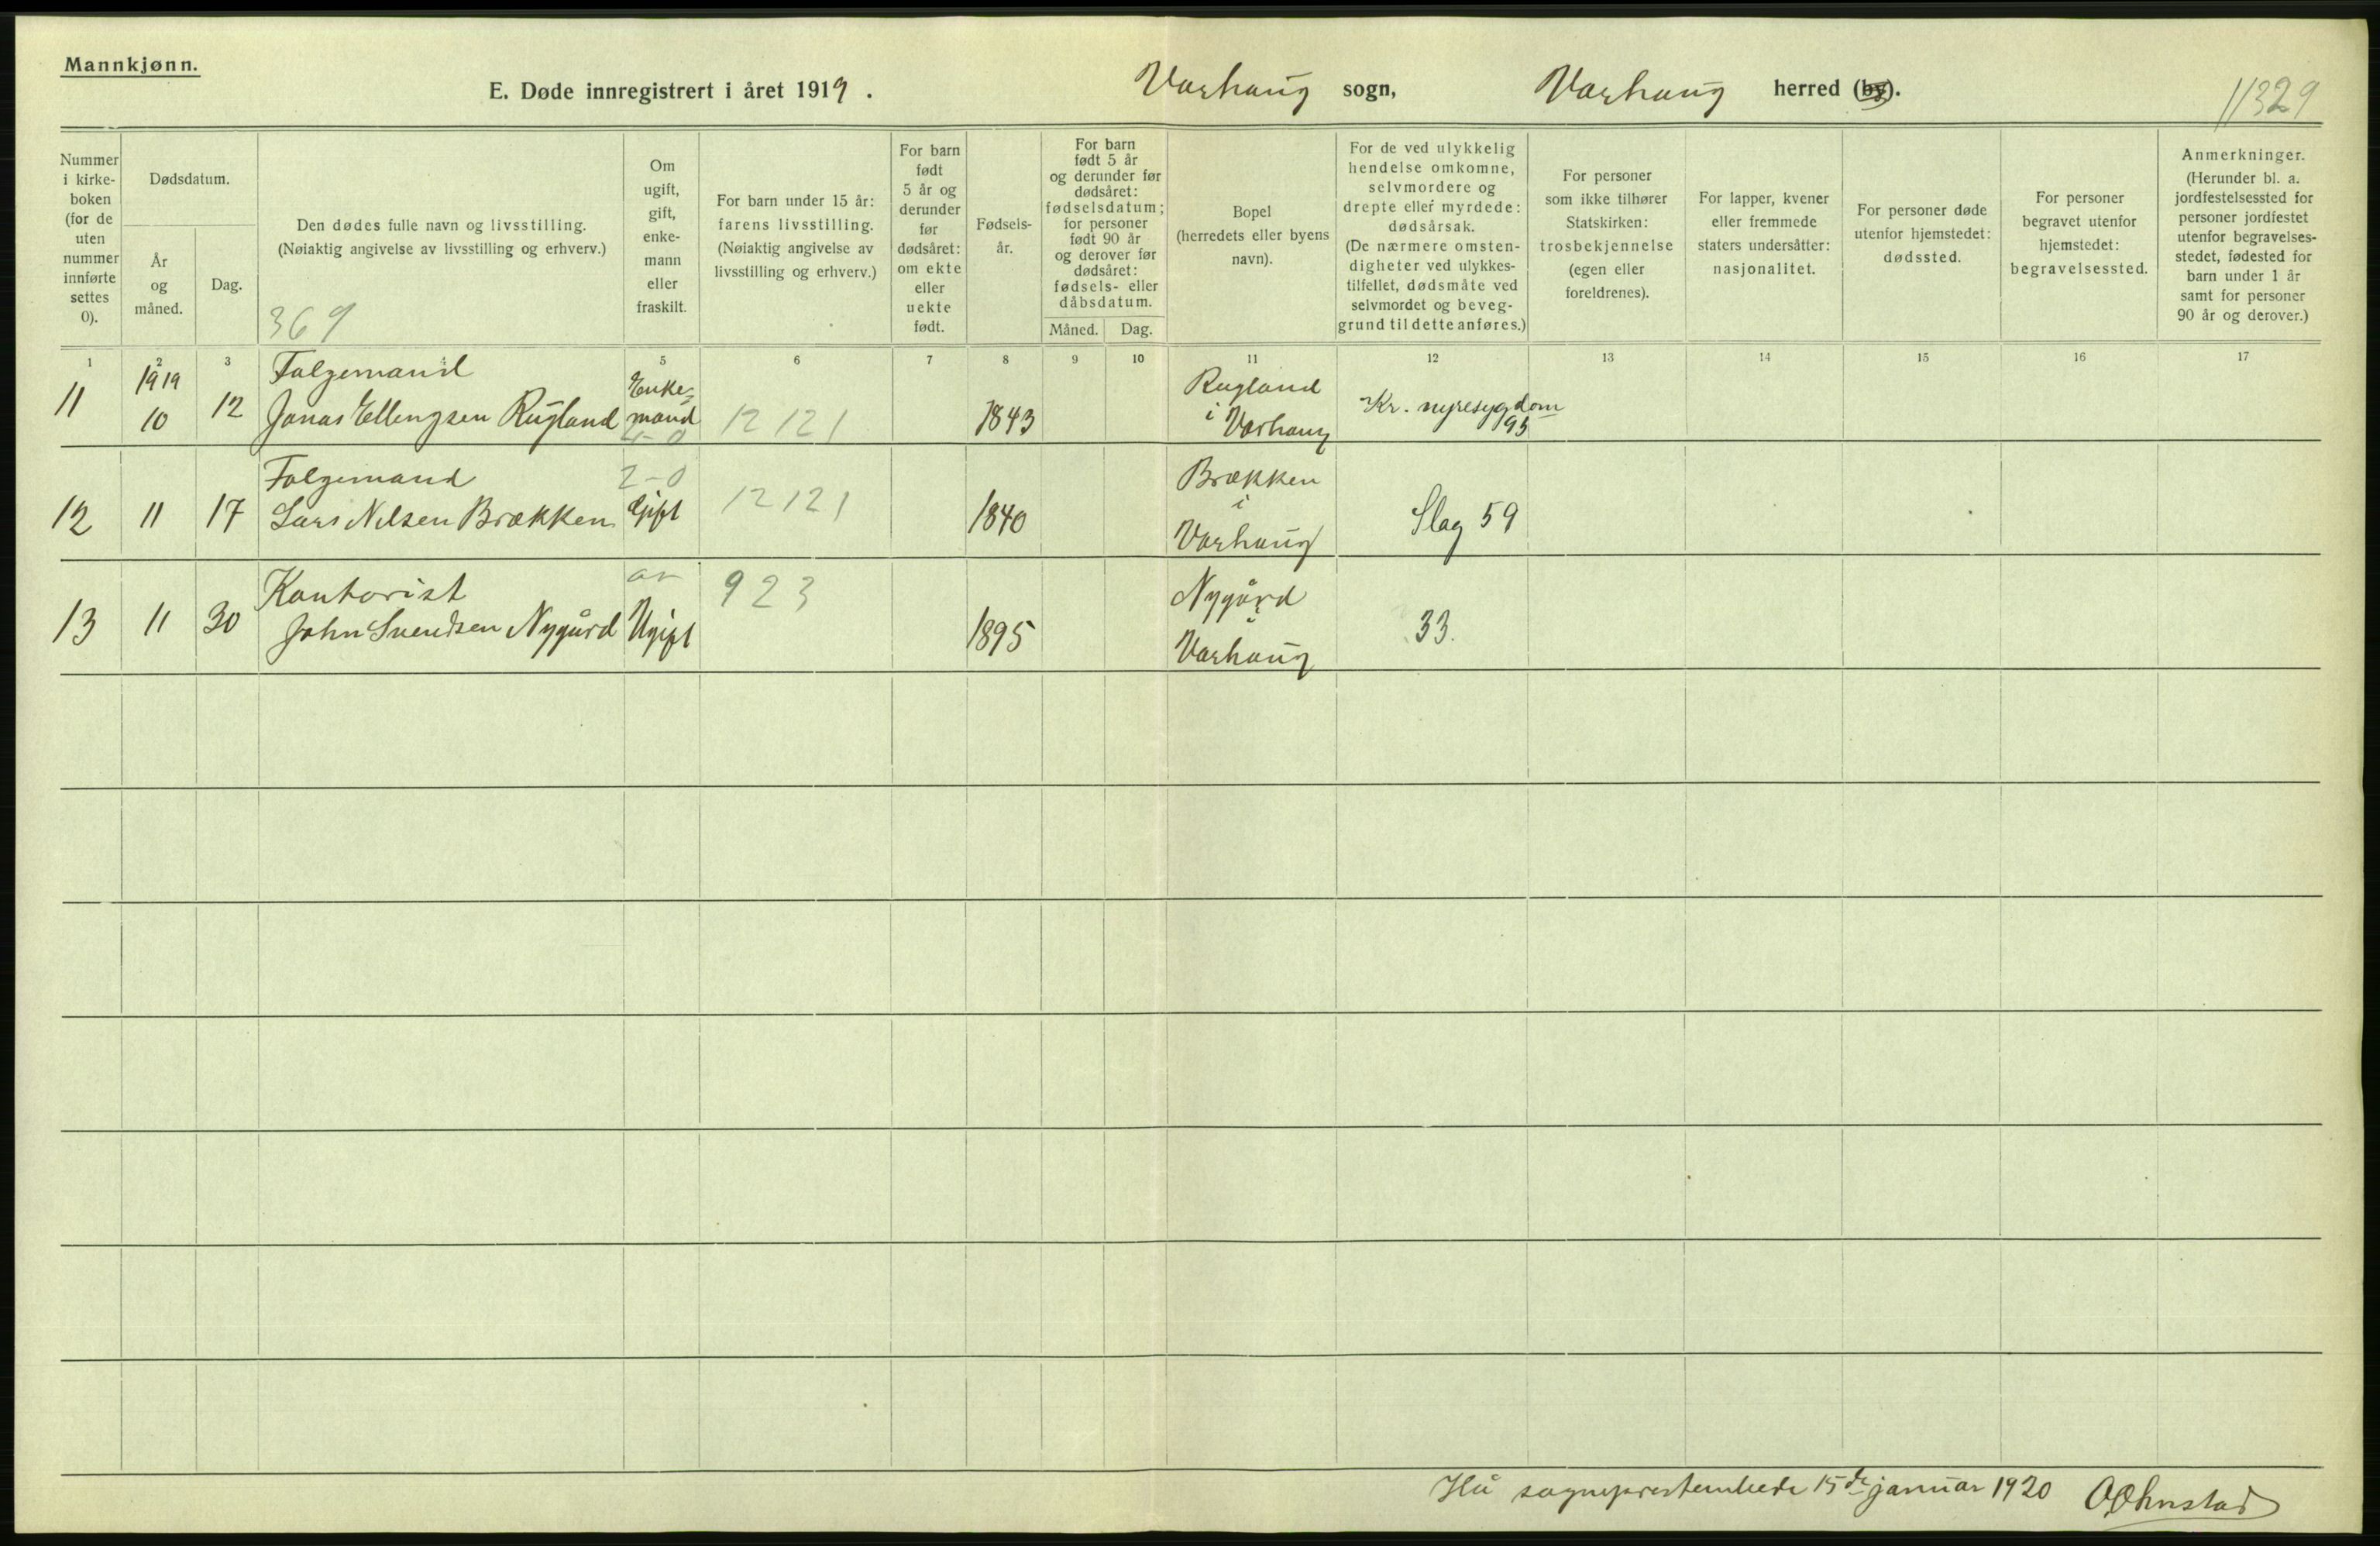 Mannkjønn.
E. Døde innregistrert i året 1919.
Varhaug sogn,
Varhaug herred (by).
11329
Nummer
i kirke-
boken
(for de
uten
nummer
innførte
settes
0).
Dødsdatum.
År
og
måned.
Dag.
Den dødes fulle navn og livsstilling.
(Nøiaktig angivelse av livsstilling og erhverv.)
369
Om
ugift,
gift,
enke-
mann
eller
fraskilt.
For barn under 15 år:
farens livsstilling.
(Nøiaktig angivelse av
livsstilling og erhverv.)
For barn
født
5 år og
derunder
før
dødsåret:
om ekte
eller
uekte
født.
Fødsels-
år.
For barn
født 5 år
og derunder før
dødsåret:
fødselsdatum;
for personer
født 90 år
og derover før
dødsåret:
fødsels- eller
dåbsdatum.
Måned. Dag.
Bopel
(herredets eller byens
navn).
For de ved ulykkelig
hendelse omkomne,
selvmordere og
drepte eller myrdede:
dødsårsak.
(De nærmere omsten-
digheter ved ulykkes-
tilfellet, dødsmåte ved
selvmordet og beveg-
grund til dette anføres.)
For personer
som ikke tilhører
Statskirken:
trosbekjennelse
(egen eller
foreldrenes).
For lapper, kvener
eller fremmede
staters undersåtter:
nasjonalitet.
For personer døde
utenfor hjemstedet:
dødssted.
For personer
begravet utenfor
hjemstedet:
begravelsessted.
Anmerkninger.
(Herunder bl. a.
jordfestelsessted for
personer jordfestet
utenfor begravelses-
stedet, fødested for
barn under 1 år
samt for personer
90 år og derover.)
1 2 3 4 5 6 7 8 9 10 11 12 13 14 15 16 17
11
1919
10
12
Folgemand
Jonas Ellengsen Rugland
Enke-
mand
4-0
12 121
1843
Rugland
i Varhaug
Kr. nyresygdom
195
12
11
17
Folgemand
Lars Nilsen Brækken
2-0
Gift
12 121
1840
Brækken
i
Varhaug
Slag 59
13
11
30
Kontorist
John Svendsen Nygård
an
Ugift
923
1895
Nygård
i
Varhaug
33.
Hå sogneprestembede 15de januar 1920